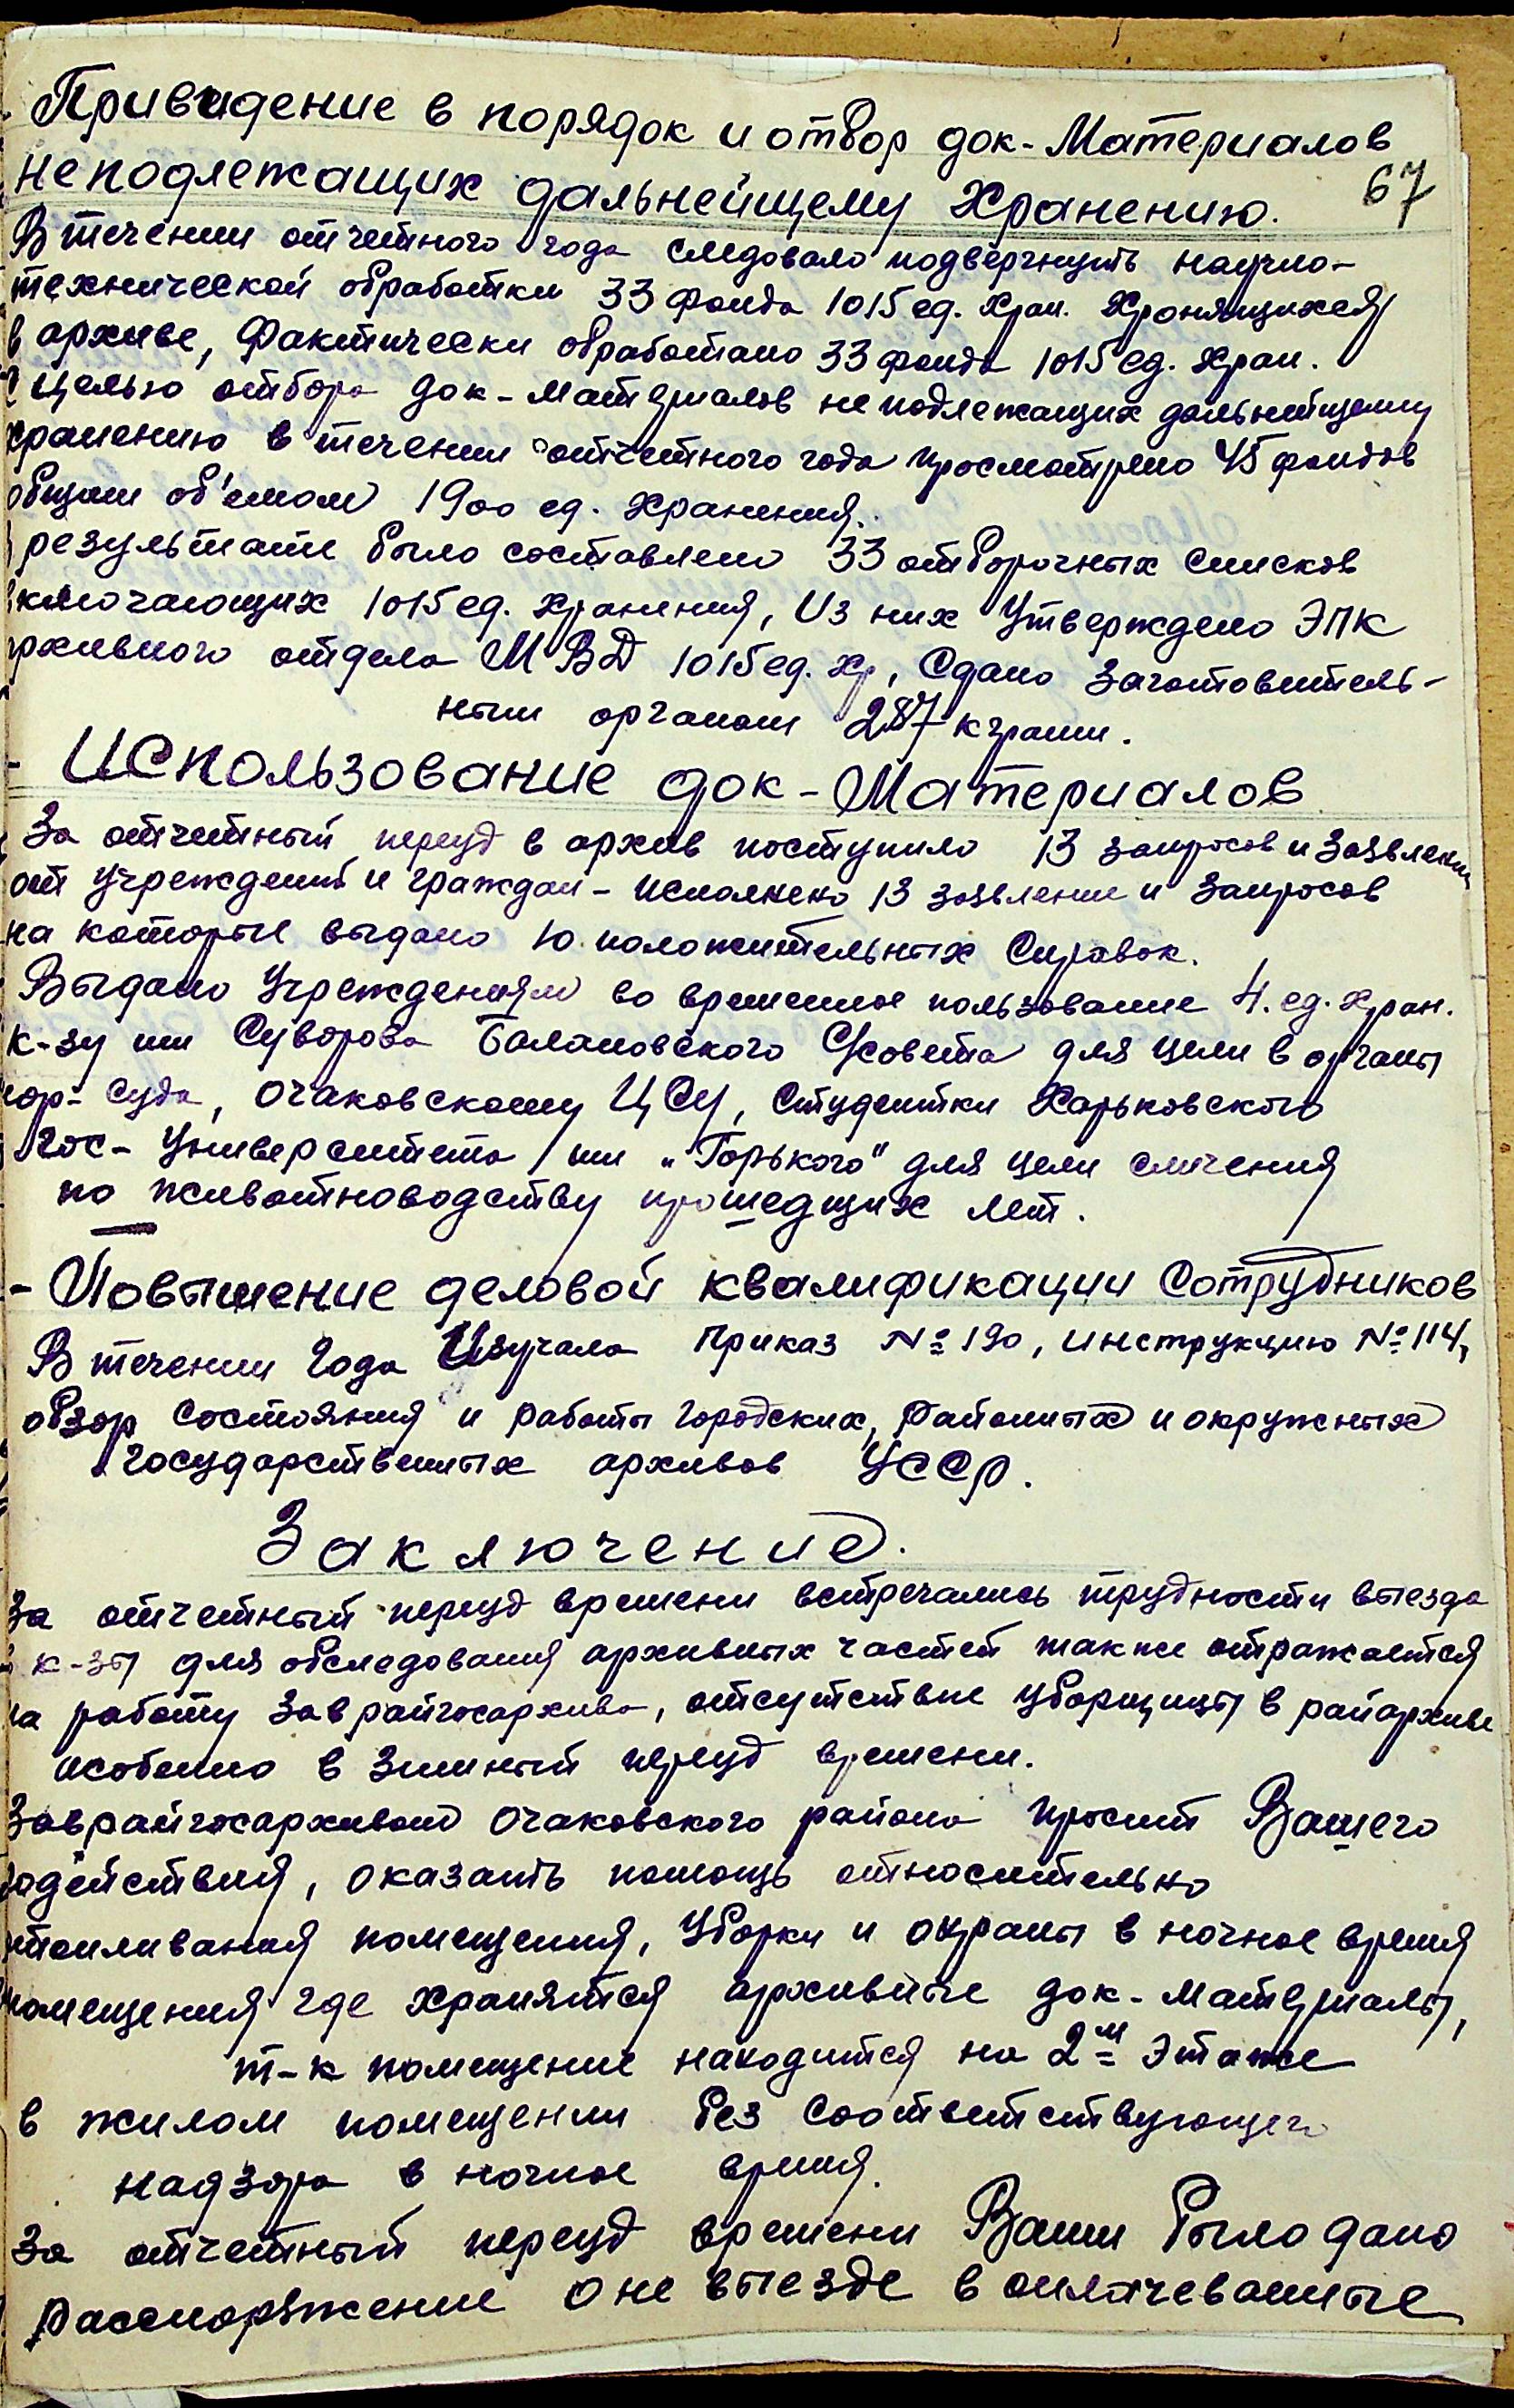 - Привидение в порядок и отбор док-Материалов
неподлежащих дальнейщему Хранению.
67
В течении отчетного года следовало подвергнуть научно-
технической обработки 33 фонда 1015 ед. хран. Хронящихся
в архиве, Фактически обработано 33 фонда 1015 ед. хран.
С целью отбора док-материалов не подлежащих дальнейщему
хранению в течении отчетного года просмотрено 45 фондов
общим об'емом 1900 ед. хранения.
В результате было составлено 33 отборочных списков
включающих 1015 ед. хранения, Из них Утверждено ЭПК
архивного отдела МВД 1015 ед. хр, Сдано Заготовитель-
ным органом 287 кграмм.
- Использование док-Материалов
За отчетный переуд в архив поступило 13 запросов и заявлении
от учреждений и граждан - исполнено 13 заявлении и запросов
на которые выдано 10 положительных Справок.
Выдано Учреждениям во временное пользование 4. ед. хран.
к-зу им Суворова Балановского С/совета для цели в органы
нор-суда, Очаковскому ЦСУ, Студентки Харьковского
Гос-Университета им „Горького" для цели сличения
по животноводству прошедщих лет.
- Повышение деловой квалификации Сотрудников
В течении года Изучала Приказ № 190, инструкцию № 114,
обзор состояния и работы городских, районных и окружных
государственных архивов УССР.
Заключение.
За отчетный переуд времени встречались трудности выезда
в к-зы для обследования архивных частей также отражается
на работу Заврайгосархива, отсутствие уборщицы в райархиве
особенно в зимный переуд времени.
Заврайгосархивом Очаковского района просит Вашего
содействия, оказать помощь относительно
отапливания помещения, Уборки и охраны в ночное время
помещения где хранятся архивные док-материалы,
т-к помещение находится на 2м этаже
в жилом помещении без соответствующего
надзора в ночное время.
За отчетный переуд времени Вами было дано
распоряжение о не выезде в оиличеванные